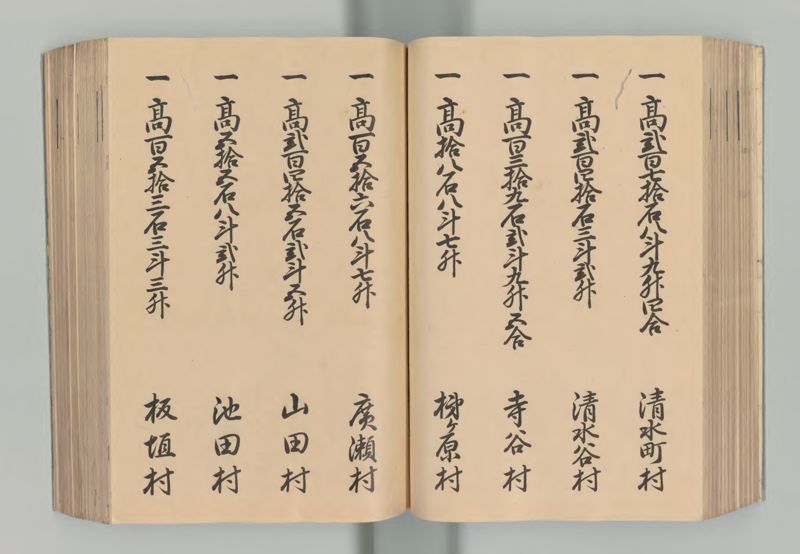 一 高弐百七拾石八斗九升四合 清水町村
一 高弐百四拾石三斗弐升 清水谷村
一 高百三拾九石弐斗九升五合 寺谷村
一 高拾八石八斗七升 梯ケ原村
一 高百五拾六石八斗七升 廣瀬村
一 高弐百四拾五石弐斗五升 山田村
一 高五拾五石八斗弐升 池田村
一 高百五拾三石三斗三升 板垣村